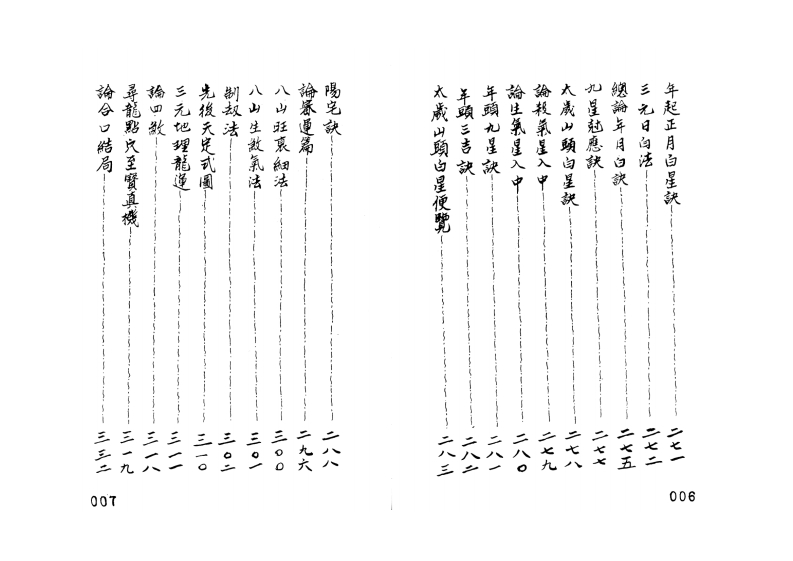 年起正月白星訣 二七一
三元日白法 二七二
總論年月白訣 二七五
九星尅應訣 二七七
太歲山頭白星訣 二七八
論殺氣星入中 二七九
論生氣星入中 二八〇
年頭九星訣 二八一
年頭三吉訣 二八二
太歲山頭白星便覽 二八三
006
陽宅訣 二八八
論衰運篇 二九六
八山旺衰細法 三〇〇
八山生敗氣法 三〇一
制刼法 三〇二
先後天定式圖 三一〇
三元地理龍運 三一一
論四敗 三一八
尋龍點穴至寶真機 三一九
論合口結局 三三二
007